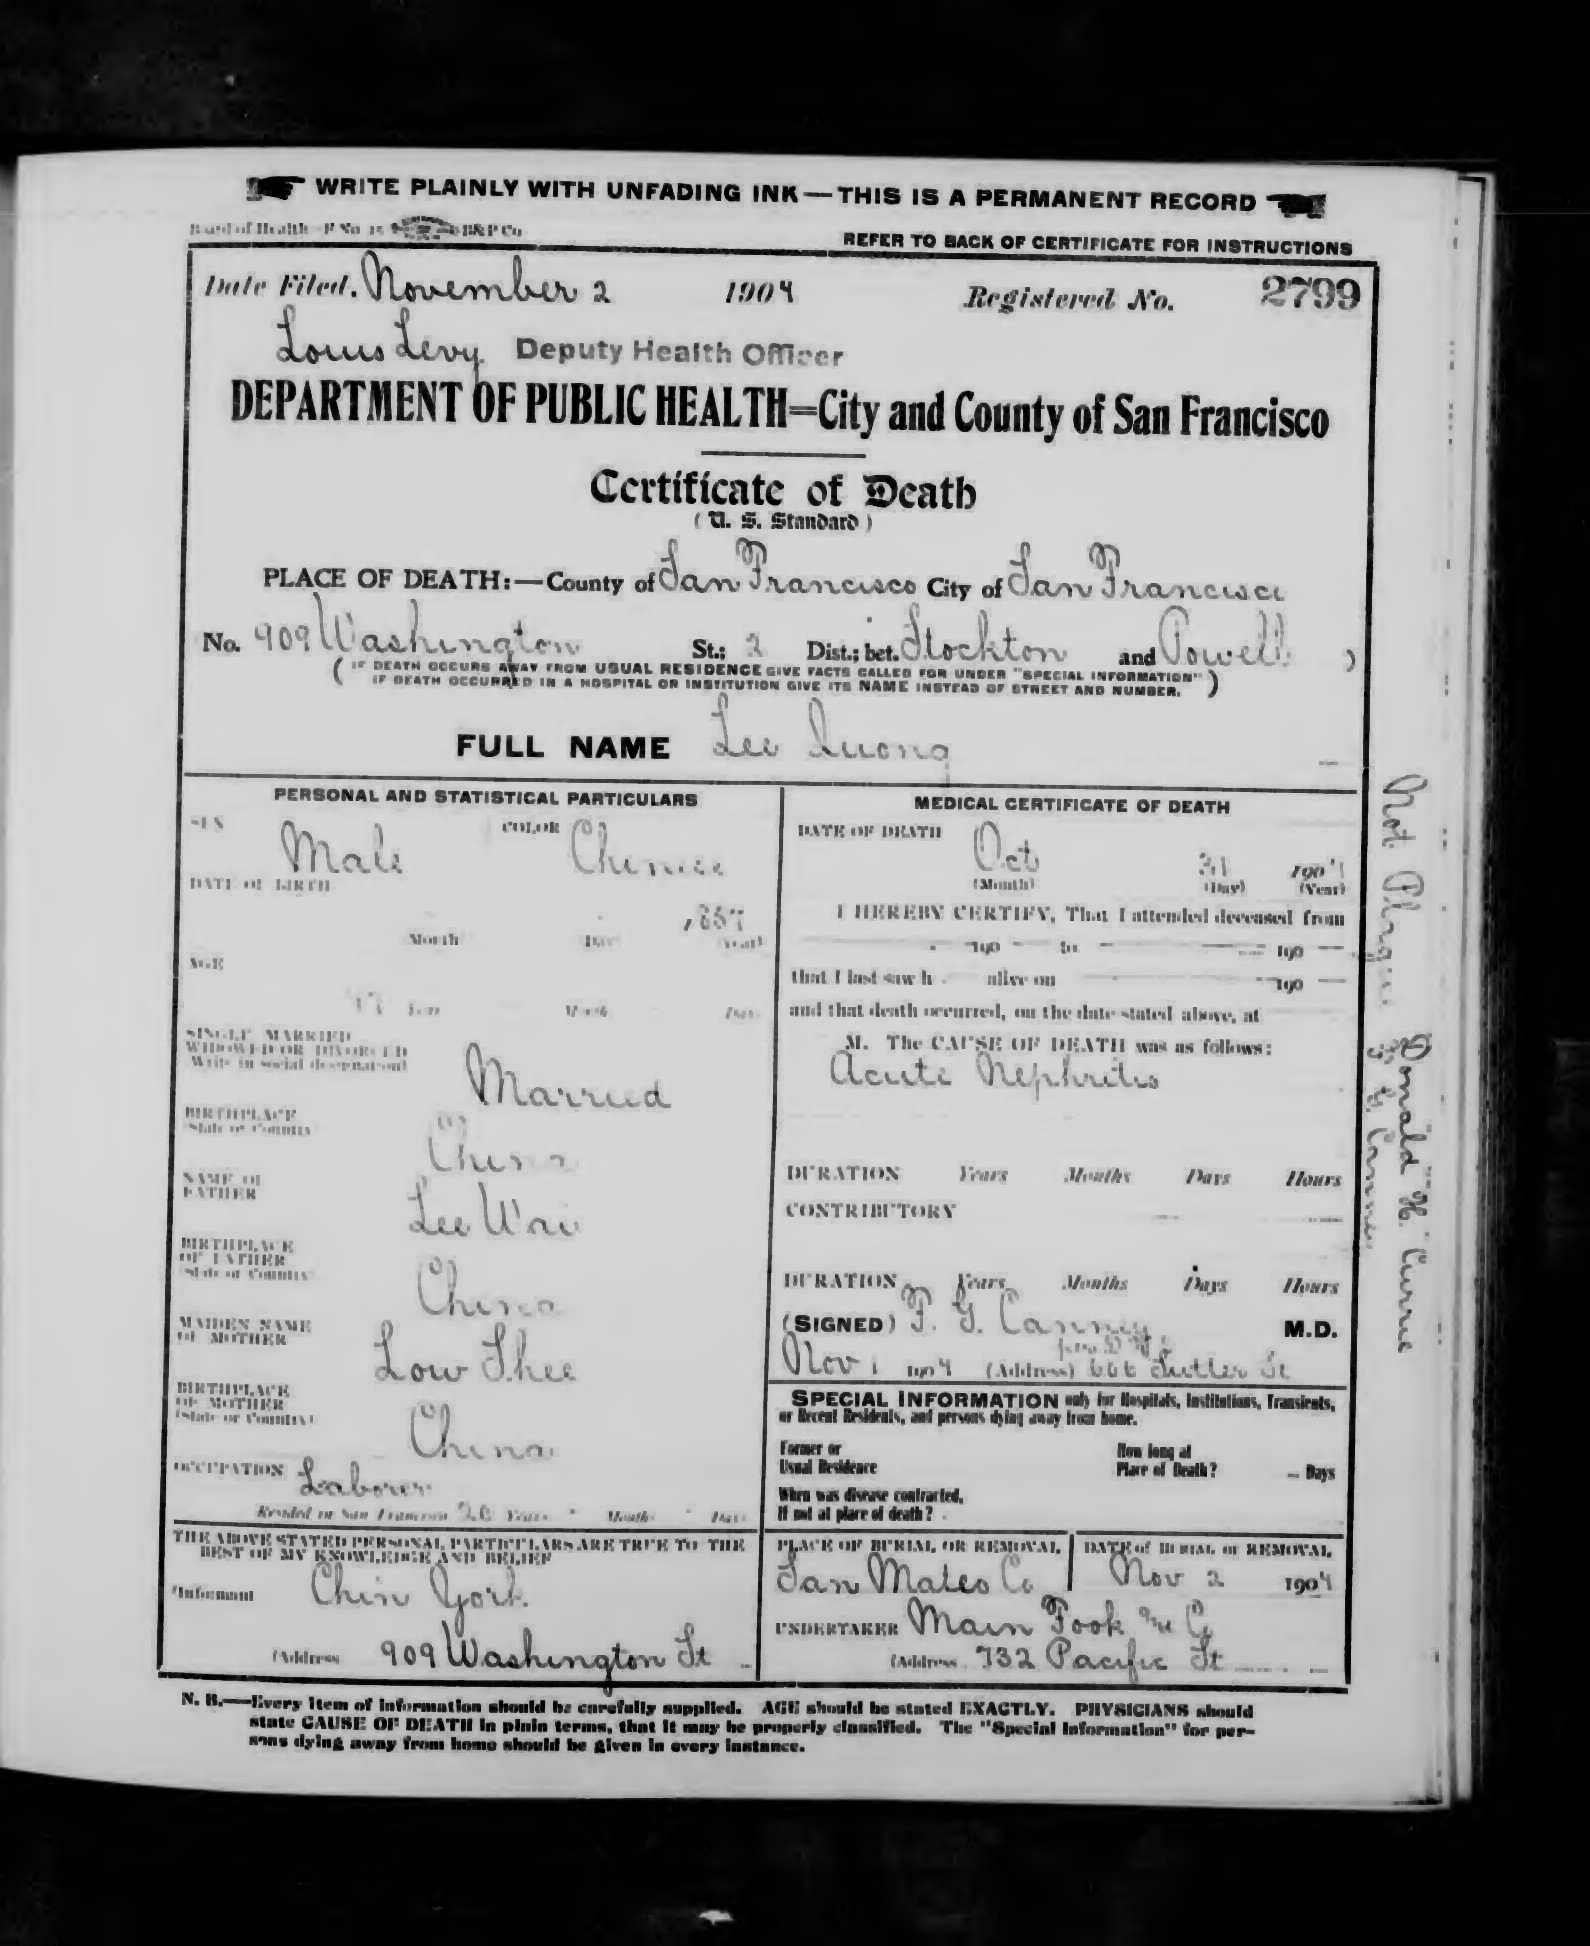 WRITE PLAINLY WITH UNFADING INK—THIS IS A PERMANENT RECORD
Board of Health-F No. 15 B&P Co
REFER TO BACK OF CERTIFICATE FOR INSTRUCTIONS
Date Filed. November 2 1904 Registered No. 2799
Louis Levy Deputy Health Officer
DEPARTMENT OF PUBLIC HEALTH=City and County of San Francisco
Certificate of Death
(U. S. Standard)
PLACE OF DEATH:—County of San Francisco City of San Francisco
No. 909 Washington St.; 2 Dist.; bet. Stockton and Powell )
( IF DEATH OCCURS AWAY FROM USUAL RESIDENCE GIVE FACTS CALLED FOR UNDER "SPECIAL INFORMATION"
IF DEATH OCCURRED IN A HOSPITAL OR INSTITUTION GIVE ITS NAME INSTEAD OF STREET AND NUMBER. )
FULL NAME Lee Quong
PERSONAL AND STATISTICAL PARTICULARS
SEX Male COLOR Chinese
DATE OF BIRTH
1857
Month Day Year
AGE
47 Years Months Days
SINGLE MARRIED
WIDOWED OR DIVORCED
Write in social designation) Married
BIRTHPLACE
State or Country China
NAME OF
FATHER Lee Wai
BIRTHPLACE
OF FATHER
State or Country China
MAIDEN NAME
OF MOTHER Low Shee
BIRTHPLACE
OF MOTHER
(State or Country) China
OCCUPATION Laborer
Resided in San Francisco 20 Years Months Days
THE ABOVE STATED PERSONAL PARTICULARS ARE TRUE TO THE
BEST OF MY KNOWLEDGE AND BELIEF
(Informant Chin York
(Address 909 Washington St
MEDICAL CERTIFICATE OF DEATH
DATE OF DEATH
Oct 31 1904
(Month) (Day) (Year)
I HEREBY CERTIFY, That I attended deceased from
190 to 190
that I last saw h alive on 190
and that death occurred, on the date stated above, at
M. The CAUSE OF DEATH was as follows:
Acute Nephritis
DURATION Years Months Days Hours
CONTRIBUTORY
DURATION Years Months Days Hours
(SIGNED) F. G. Canney M.D.
Nov 1 1904 (Address) 666 Sutter St
SPECIAL INFORMATION only for Hospitals, Institutions, Transients,
or Recent Residents, and persons dying away from home.
Former or
Usual Residence
How long at
Place of Death? Days
When was disease contracted,
If not at place of death?
PLACE OF BURIAL OR REMOVAL
San Mateo Co
DATE of BURIAL or REMOVAL
Nov 2 1904
UNDERTAKER Main Fook
(Address 732 Pacific St
N. B.—Every item of information should be carefully supplied. AGE should be stated EXACTLY. PHYSICIANS should
state CAUSE OF DEATH in plain terms, that it may be properly classified. The "Special Information" for per-
sons dying away from home should be given in every instance.
Not Plague
F G Canney
Donald H. Currie